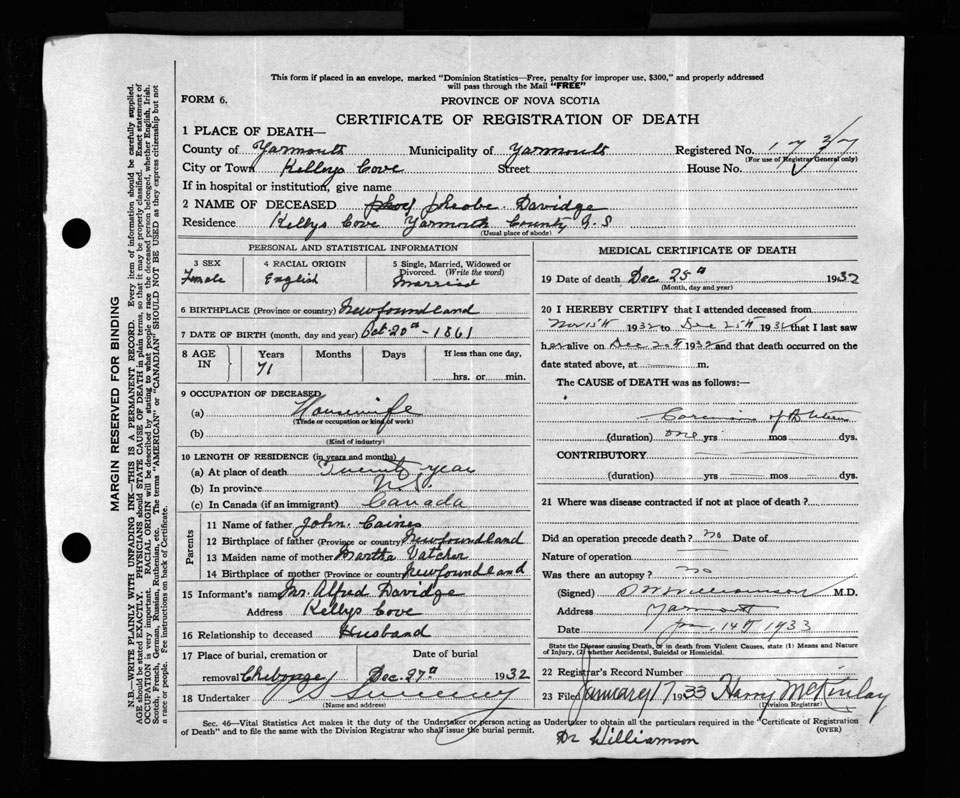 This form if placed in an envelope, marked "Dominion Statistics—Free, penalty for improper use, $300," and properly addressed
will pass through the Mail "FREE"
FORM 6.
PROVINCE OF NOVA SCOTIA
CERTIFICATE OF REGISTRATION OF DEATH
1 PLACE OF DEATH—
County of Yarmouth Municipality of Yarmouth Registered No.
(For use of Registrar General only)
City or Town Kellys Cove Street House No.
If in hospital or institution, give name
2 NAME OF DECEASED Pheobe Davidge
Residence Kellys Cove Yarmouth County N.S
(Usual place of abode)
PERSONAL AND STATISTICAL INFORMATION
3 SEX 4 RACIAL ORIGIN 5 Single, Married, Widowed or
Divorced. (Write the word)
Female English Married
6 BIRTHPLACE (Province or country) Newfoundland
7 DATE OF BIRTH (month, day and year) Oct 20th - 1861
8 AGE IN Years Months Days If less than one day,
71 hrs. or min.
9 OCCUPATION OF DECEASED
(a) Housewife
(Trade or occupation or kind of work)
(b)
(Kind of industry)
10 LENGTH OF RESIDENCE (in years and months)
(a) At place of death Twenty year
(b) In province N.S.
(c) In Canada (if an immigrant) Canada
Parents
11 Name of father John Caines
12 Birthplace of father (Province or country) Newfoundland
13 Maiden name of mother Martha Vatcher
14 Birthplace of mother (Province or country) Newfoundland
15 Informant's name Mr. Alfred Davidge
Address Kellys Cove
16 Relationship to deceased Husband
17 Place of burial, cremation or Date of burial
removal Chebogue Dec. 27th 1932
18 Undertaker Sweeney
(Name and address)
MEDICAL CERTIFICATE OF DEATH
19 Date of death Dec 25th 1932
(Month, day and year)
20 I HEREBY CERTIFY that I attended deceased from
Nov 15th 1932 to Dec 25th 1932 that I last saw
her alive on Dec 20th 1932 and that death occurred on the
date stated above, at m.
The CAUSE of DEATH was as follows:—
of Uterus
(duration) one yrs mos dys.
CONTRIBUTORY
(duration) yrs mos dys.
21 Where was disease contracted if not at place of death?
Did an operation precede death? no Date of
Nature of operation
Was there an autopsy? no
(Signed) Williamson M.D.
Address Yarmouth
Date Jan. 14th 1933
State the Disease causing Death, or in death from Violent Causes, state (1) Means and Nature
of Injury, (2) whether Accidental, Suicidal or Homicidal.
22 Registrar's Record Number
23 Filed January 17 1933 Harry McKinlay
(Division Registrar)
Sec. 46—Vital Statistics Act makes it the duty of the Undertaker or person acting as Undertaker to obtain all the particulars required in the "Certificate of Registration
of Death" and to file the same with the Division Registrar who shall issue the burial permit.
(OVER)
Dr Williamson
MARGIN RESERVED FOR BINDING
N.B.—WRITE PLAINLY WITH UNFADING INK—THIS IS A PERMANENT RECORD. Every item of information should be carefully supplied.
AGE should be stated EXACTLY. PHYSICIANS should STATE CAUSE OF DEATH in plain terms, so that it may be properly classified. Exact statement of
OCCUPATION is very important. RACIAL ORIGIN will be described by stating to what people or race the deceased person belonged, whether English, Irish,
Scotch, French, German, Russian, Ruthenian, etc. The terms "AMERICAN" or "CANADIAN" SHOULD NOT BE USED as they express citizenship but not
a race or people. Fee instructions on back of Certificate.